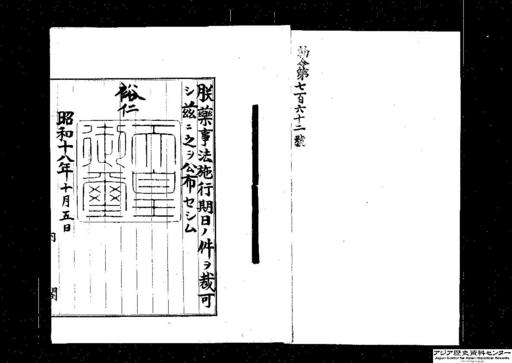 勅令第七百六十二號
朕藥事法施行期日ノ件ヲ裁可
シ茲ニ之ヲ公布セシム
裕仁
天皇御璽
昭和十八年十月五日
内閣
アジア歴史資料センター
Japan Center for Asian Historical Records